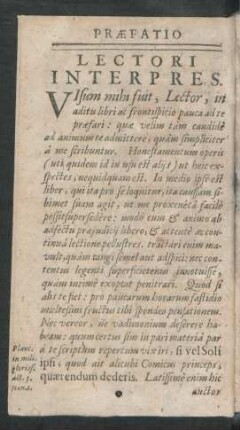 PRÆFATIO
LECTORI
INTERPRES.
VIsum mihi fuit, Lector, in
aditu libri ac frontispicio pauca ad te
præfari: quæ velim tàm candidè
ad animum te admittere, quàm simpliciter
à me scribuntur. Honestamentum operis
(uti quidem id in usu est aliis) ut heic ex-
spectes, nequidquam est. In medio ipse est
liber, qui ita pro se loquitur, ita caussam si-
bimet suam agit, ut me proxenetâ facilè
possit supersedere: modò eum & animo ab
adfectu præjudicij libero, & attentè ac con-
tinuâ lectione pellustres. tractari enim ma-
vult, quàm tangi semel aut adspici: nec con-
tentus legenti superficietenus innotuisse,
quàm intimè exoptat penitrari. Quod si
abs te fiet: pro paucarum horarum fastidio
multesimi fructus tibi spondeo pensationem.
Nec vereor, ne vadimonium deserere ha-
beam: quum certus sim in pari materiâ pa-
ri te scriptum repertum vix iri, si vel Soli
ipsi, quod ait alicubi Comicus princeps,
quærendum dederis. Latissimè enim hic
auctor
Plaut.
in mili.
glorios.
act. 3.
scena.